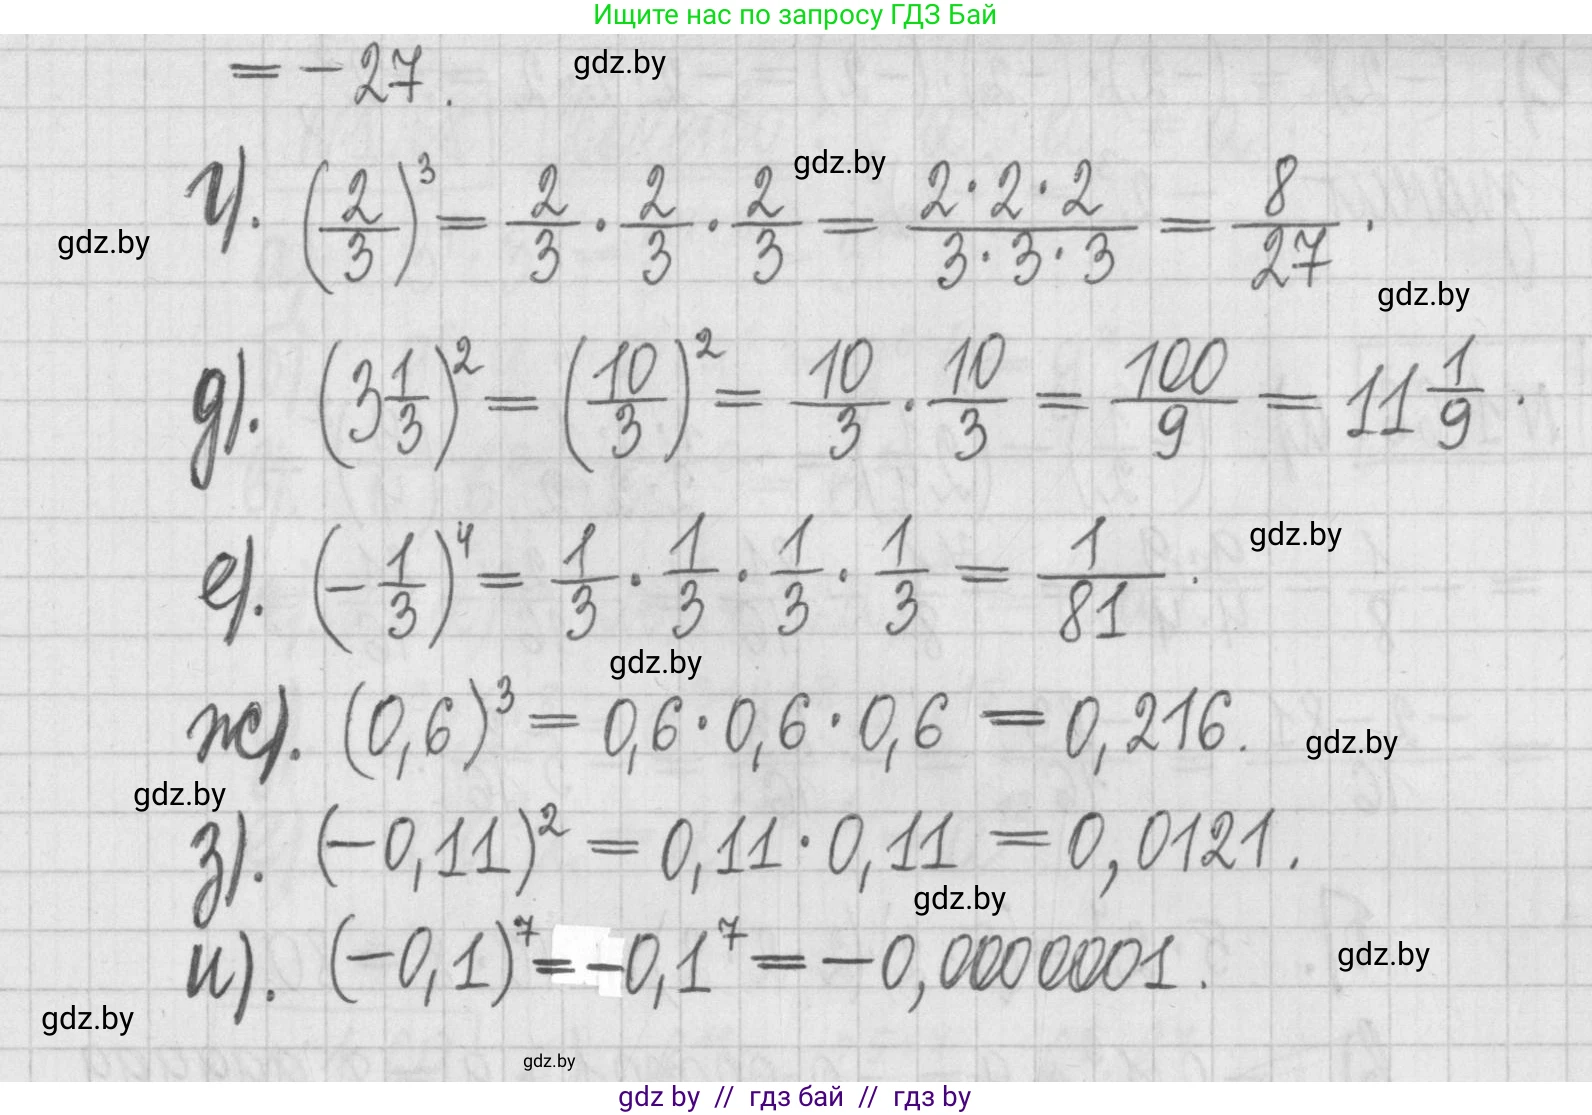 Ищите нас по запросу ГДЗ Бай
= -27.
gdz.by
г). (2/3)^3 = 2/3 · 2/3 · 2/3 = 2·2·2/3·3·3 = 8/27.
gdz.by
gdz.by
gdz.by
д). (3 1/3)^2 = (10/3)^2 = 10/3 · 10/3 = 100/9 = 11 1/9.
gdz.by
е). (-1/3)^4 = 1/3 · 1/3 · 1/3 · 1/3 = 1/81.
gdz.by
ж). (0,6)^3 = 0,6·0,6·0,6 = 0,216.
gdz.by
gdz.by
з). (-0,11)^2 = 0,11·0,11 = 0,0121.
gdz.by
и). (-0,1)^7 = -0,1^7 = -0,0000001.
gdz.by
gdz.by
gdz.by
gdz by // гдз бай // гдз by